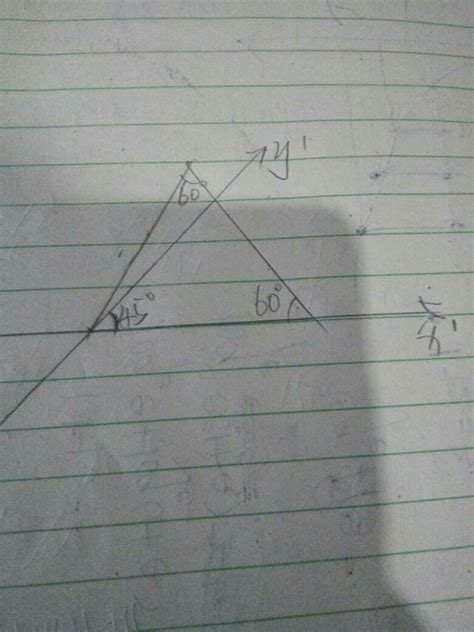 y'
60°
45° 60°
x'